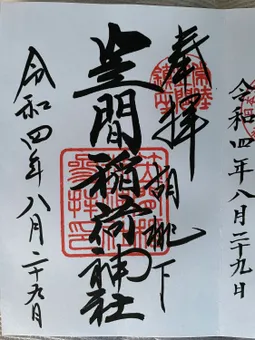 令和四年八月二十九日
奉拝
胡桃下
笠間稲荷神社
令和四年八月二十九日